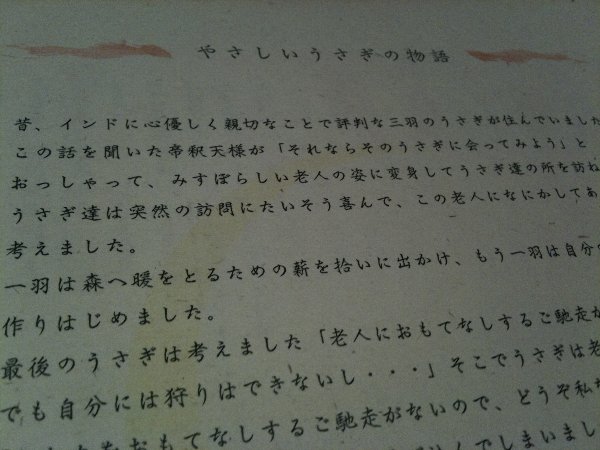 やさしいうさぎの物語
昔、インドに心優しく親切なことで評判な三羽のうさぎが住んでいました
この話を聞いた帝釈天様が「それならそのうさぎに会ってみよう」と
おっしゃって、みすぼらしい老人の姿に変身してうさぎ達の所を訪ね
うさぎ達は突然の訪問にたいそう喜んで、この老人になにかしてあ
考えました。
一羽は森へ暖をとるための薪を拾いに出かけ、もう一羽は自分
作りはじめました。
最後のうさぎは考えました「老人におもてなしするご馳走が
でも自分には狩りはできないし・・・」そこでうさぎは老
をおもてなしするご馳走がないので、どうぞ私
でしまいまし